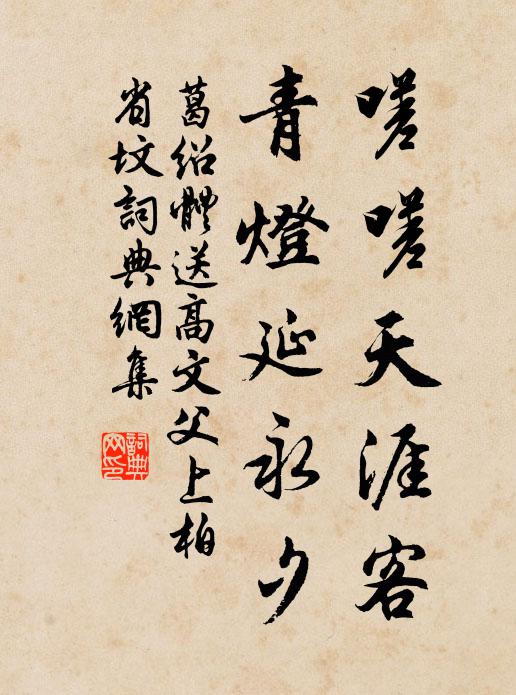 嗟嗟天涯客
青燈延永夕
葛紹體送高文父上柏
省墳詞典網集
詞典
网印